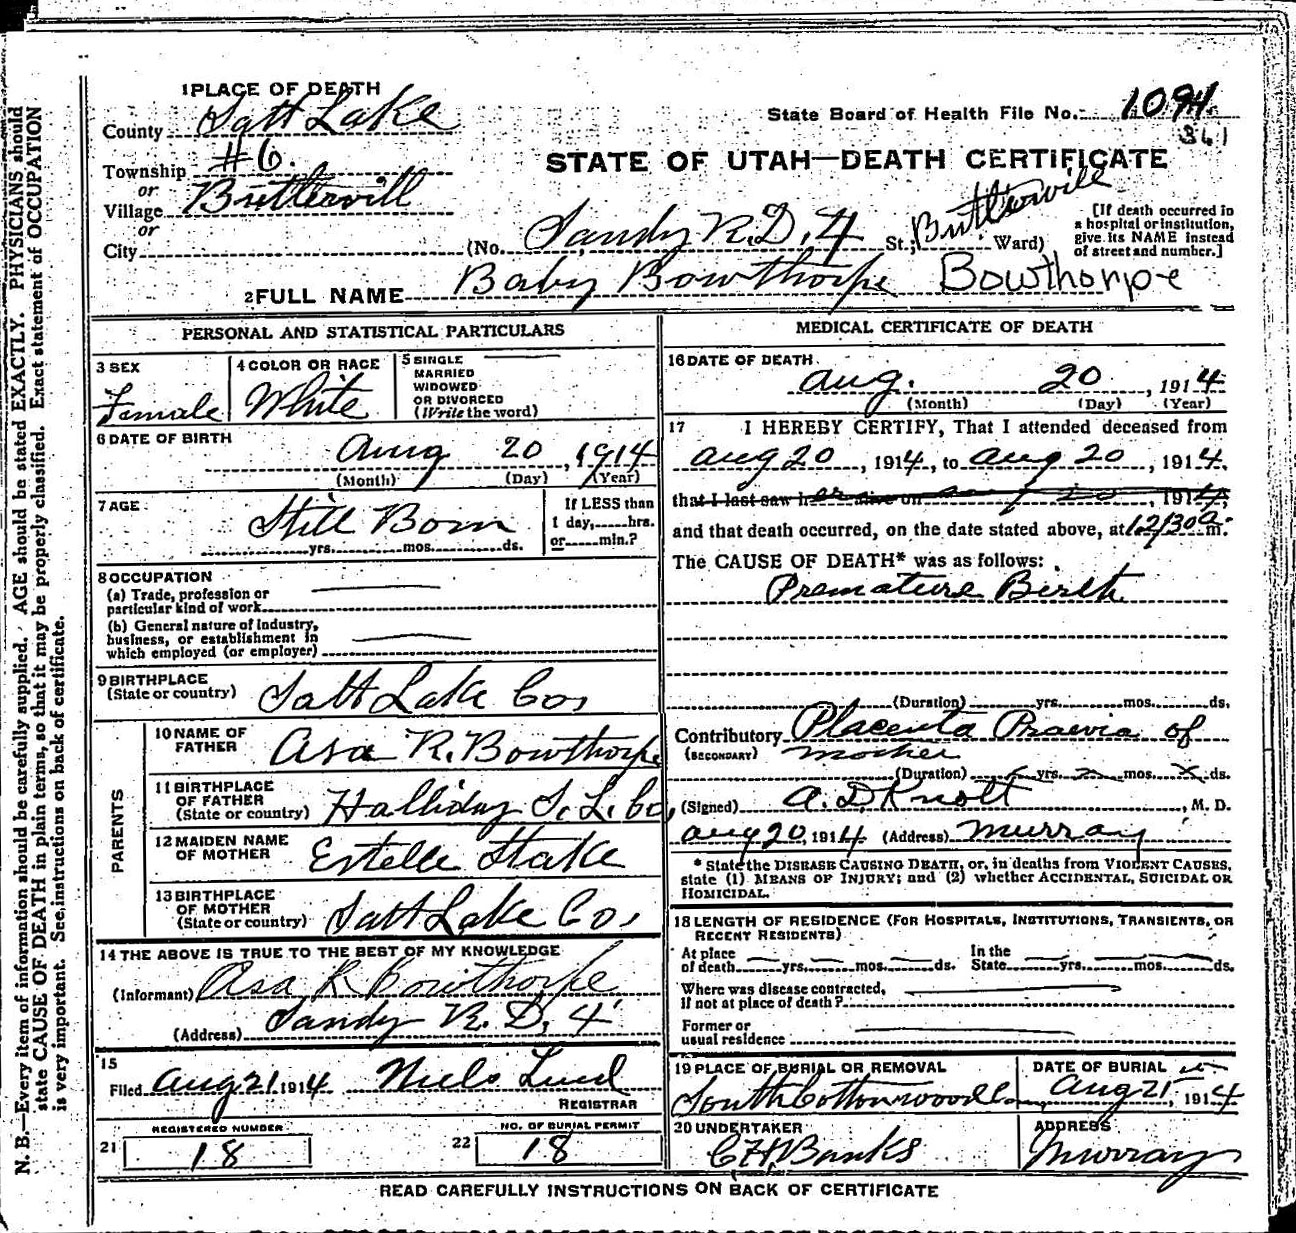 1 PLACE OF DEATH
County Salt Lake
State Board of Health File No. 1094
361
Township #6.
STATE OF UTAH—DEATH CERTIFICATE
or
Village Buttervill
or
City (No. Sandy R.D. 4 St; Ward)
[If death occurred in a hospital or institution, give its NAME instead of street and number.]
2 FULL NAME Baby Bowthorpe Bowthorpe
PERSONAL AND STATISTICAL PARTICULARS
3 SEX
Female
4 COLOR OR RACE
White
5 SINGLE
MARRIED
WIDOWED
OR DIVORCED
(Write the word)
6 DATE OF BIRTH
Aug 20, 1914
(Month) (Day) (Year)
7 AGE
Still Born
yrs. mos. ds.
If LESS than
1 day, hrs.
or min.?
8 OCCUPATION
(a) Trade, profession or
particular kind of work
(b) General nature of industry,
business, or establishment in
which employed (or employer)
9 BIRTHPLACE
(State or country) Salt Lake Co,
PARENTS
10 NAME OF
FATHER Asa R. Bowthorpe
11 BIRTHPLACE
OF FATHER
(State or country) Halliday S. L. Co,
12 MAIDEN NAME
OF MOTHER Estelle Stake
13 BIRTHPLACE
OF MOTHER
(State or country) Salt Lake Co,
14 THE ABOVE IS TRUE TO THE BEST OF MY KNOWLEDGE
(Informant) Asa R Bowthorpe
(Address) Sandy R. D. 4
15
Filed Aug 21, 1914 Niels Lind
REGISTRAR
REGISTERED NUMBER
21 18
NO. OF BURIAL PERMIT
22 18
MEDICAL CERTIFICATE OF DEATH
16 DATE OF DEATH
Aug. 20, 1914
(Month) (Day) (Year)
17 I HEREBY CERTIFY, That I attended deceased from
Aug 20, 1914, to Aug 20, 1914,
that I last saw her alive on 20, 1914,
and that death occurred, on the date stated above, at 12/30 a. m.
The CAUSE OF DEATH* was as follows:
Premature Birth
(Duration) yrs. mos. ds.
Contributory Placenta Praevia of
(SECONDARY) mother
(Duration) yrs. mos. ds.
(Signed) A. D. Knott, M. D.
Aug 20, 1914 (Address) Murray
* State the DISEASE CAUSING DEATH, or, in deaths from VIOLENT CAUSES,
state (1) MEANS OF INJURY; and (2) whether ACCIDENTAL, SUICIDAL OR
HOMICIDAL.
18 LENGTH OF RESIDENCE (FOR HOSPITALS, INSTITUTIONS, TRANSIENTS, OR
RECENT RESIDENTS)
At place
of death yrs. mos. ds.
In the
State yrs. mos. ds.
Where was disease contracted,
if not at place of death?
Former or
usual residence
19 PLACE OF BURIAL OR REMOVAL
South Cottonwood
DATE OF BURIAL
Aug 21, 1914
20 UNDERTAKER
Banks
ADDRESS
Murray
READ CAREFULLY INSTRUCTIONS ON BACK OF CERTIFICATE
N. B.—Every item of information should be carefully supplied. AGE should be stated EXACTLY. PHYSICIANS should
state CAUSE OF DEATH in plain terms, so that it may be properly classified. Exact statement of OCCUPATION
is very important. See instructions on back of certificate.